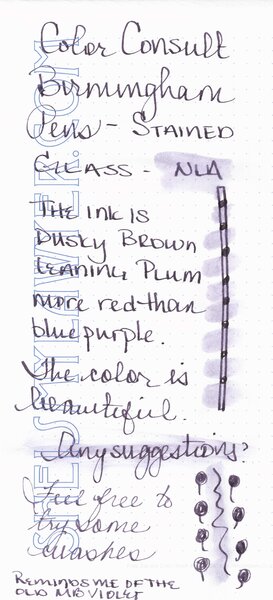 Color Consult
Birmingham
Pens - STAINED
GLASS - NLA
THE INK IS
DUSKY BROWN
LEANING PLUM
more red than
blue purple.
The color is
beautiful.
Any suggestions?
Feel free to
try some
swashes
REMINDS ME OF THE
OLD MB VIOLET